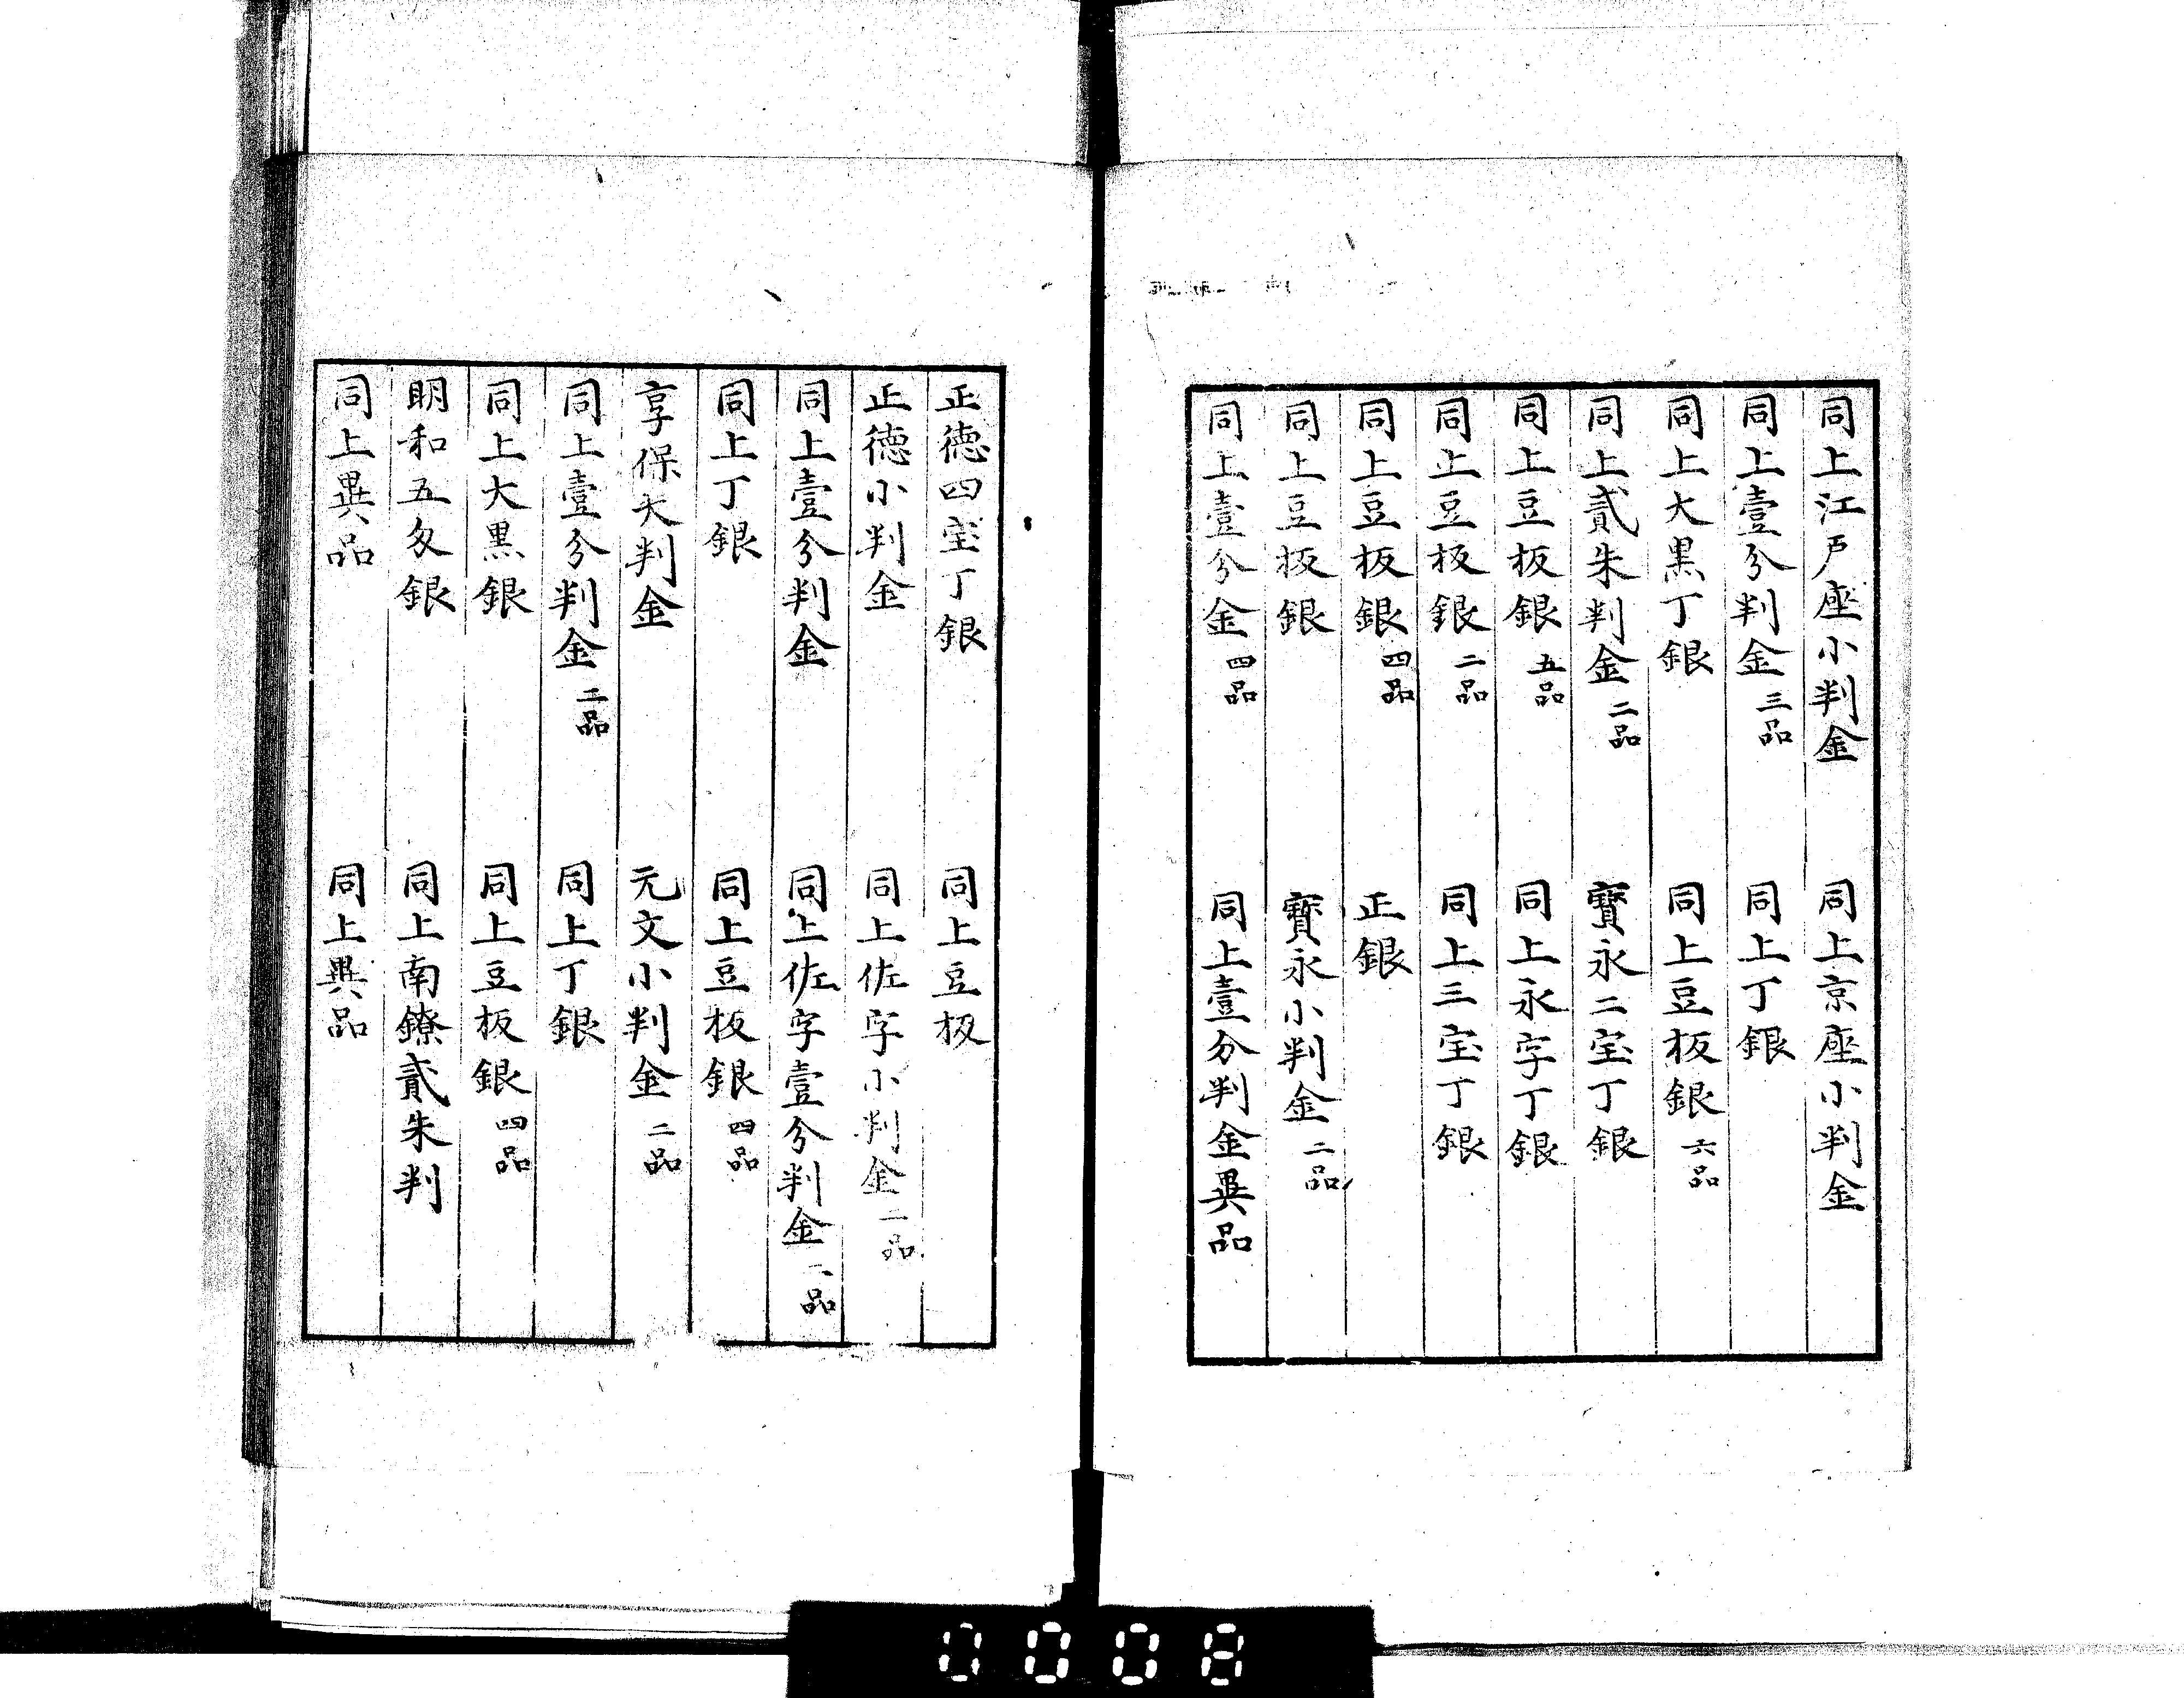 同上江戸座小判金　同上京座小判金
同上壹分判金三品　同上丁銀
同上大黒丁銀　同上豆板銀六品
同上貳朱判金二品　寶永二宝丁銀
同上豆板銀五品　同上永字丁銀
同上豆板銀二品　同上三宝丁銀
同上豆板銀四品　正銀
同上豆板銀　寶永小判金二品
同上壹分金四品　同上壹分判金異品
正徳四宝丁銀　同上豆板
正徳小判金　同上佐字小判金二品
同上壹分判金　同上佐字壹分判金二品
同上丁銀　同上豆板銀四品
享保大判金　元文小判金二品
同上壹分判金二品　同上丁銀
同上大黒銀　同上豆板銀四品
明和五匁銀　同上南鐐貳朱判
同上異品　同上異品
0008